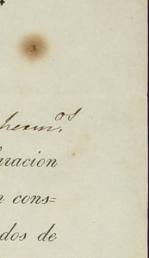 hecm.os
uracion
n cons=
dos de